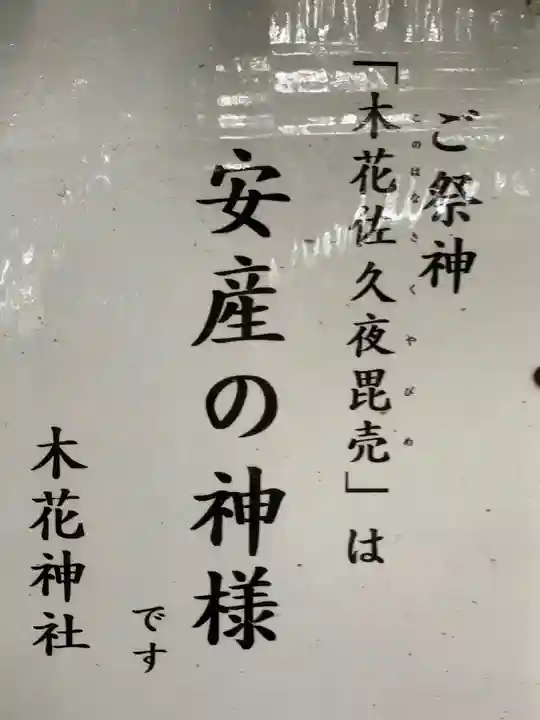 ご祭神
「木花佐久夜毘売」は
このはなさくやびめ
安産の神様
です
木花神社